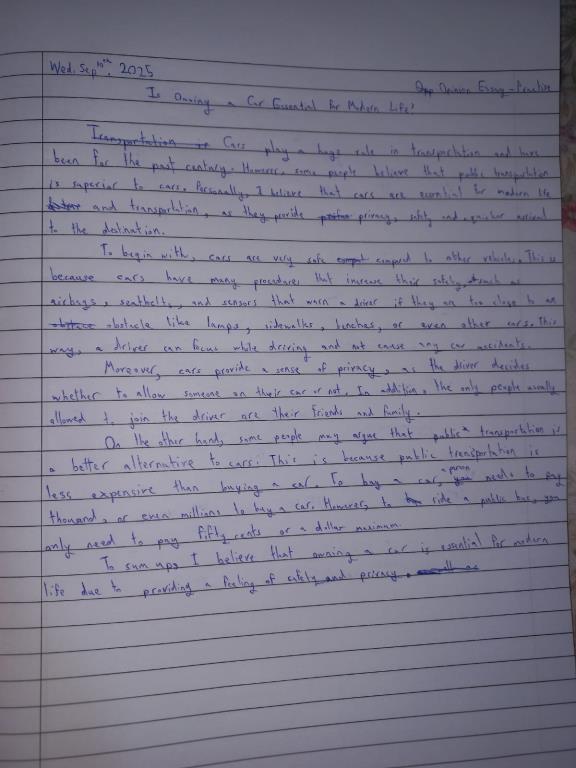 Wed. Sep 10th, 2025
Opp Opinion Essay - Practice
Is Owning a Car Essential for Modern Life?
Transportation is Cars play a huge role in transportation and have
been for the past century. However, some people believe that public transportation
is superior to cars. Personally, I believe that cars are essential for modern life
and transportation, as they provide privacy, safety and quicker arrival
to the destination.
To begin with, cars are very safe compared to other vehicles. This is
because cars have many procedures that increase their safety, such as
airbags, seatbelts, and sensors that warn a driver if they are too close to an
obstacle obstacle like lamps, sidewalks, benches, or even other cars. This
way, a driver can focus while driving and not cause any car accidents.
Moreover, cars provide a sense of privacy, as the driver decides
whether to allow someone on their car or not. In addition, the only people usually
allowed to join the driver are their friends and family.
On the other hand, some people may argue that public transportation is
a better alternative to cars. This is because public transportation is
less expensive than buying a car. To buy a car, you person needs to pay
thousand, or even millions to buy a car. However, to ride a public bus, you
only need to pay fifty cents or a dollar maximum.
To sum up, I believe that owning a car is essential for modern
life due to providing a feeling of safety and privacy.